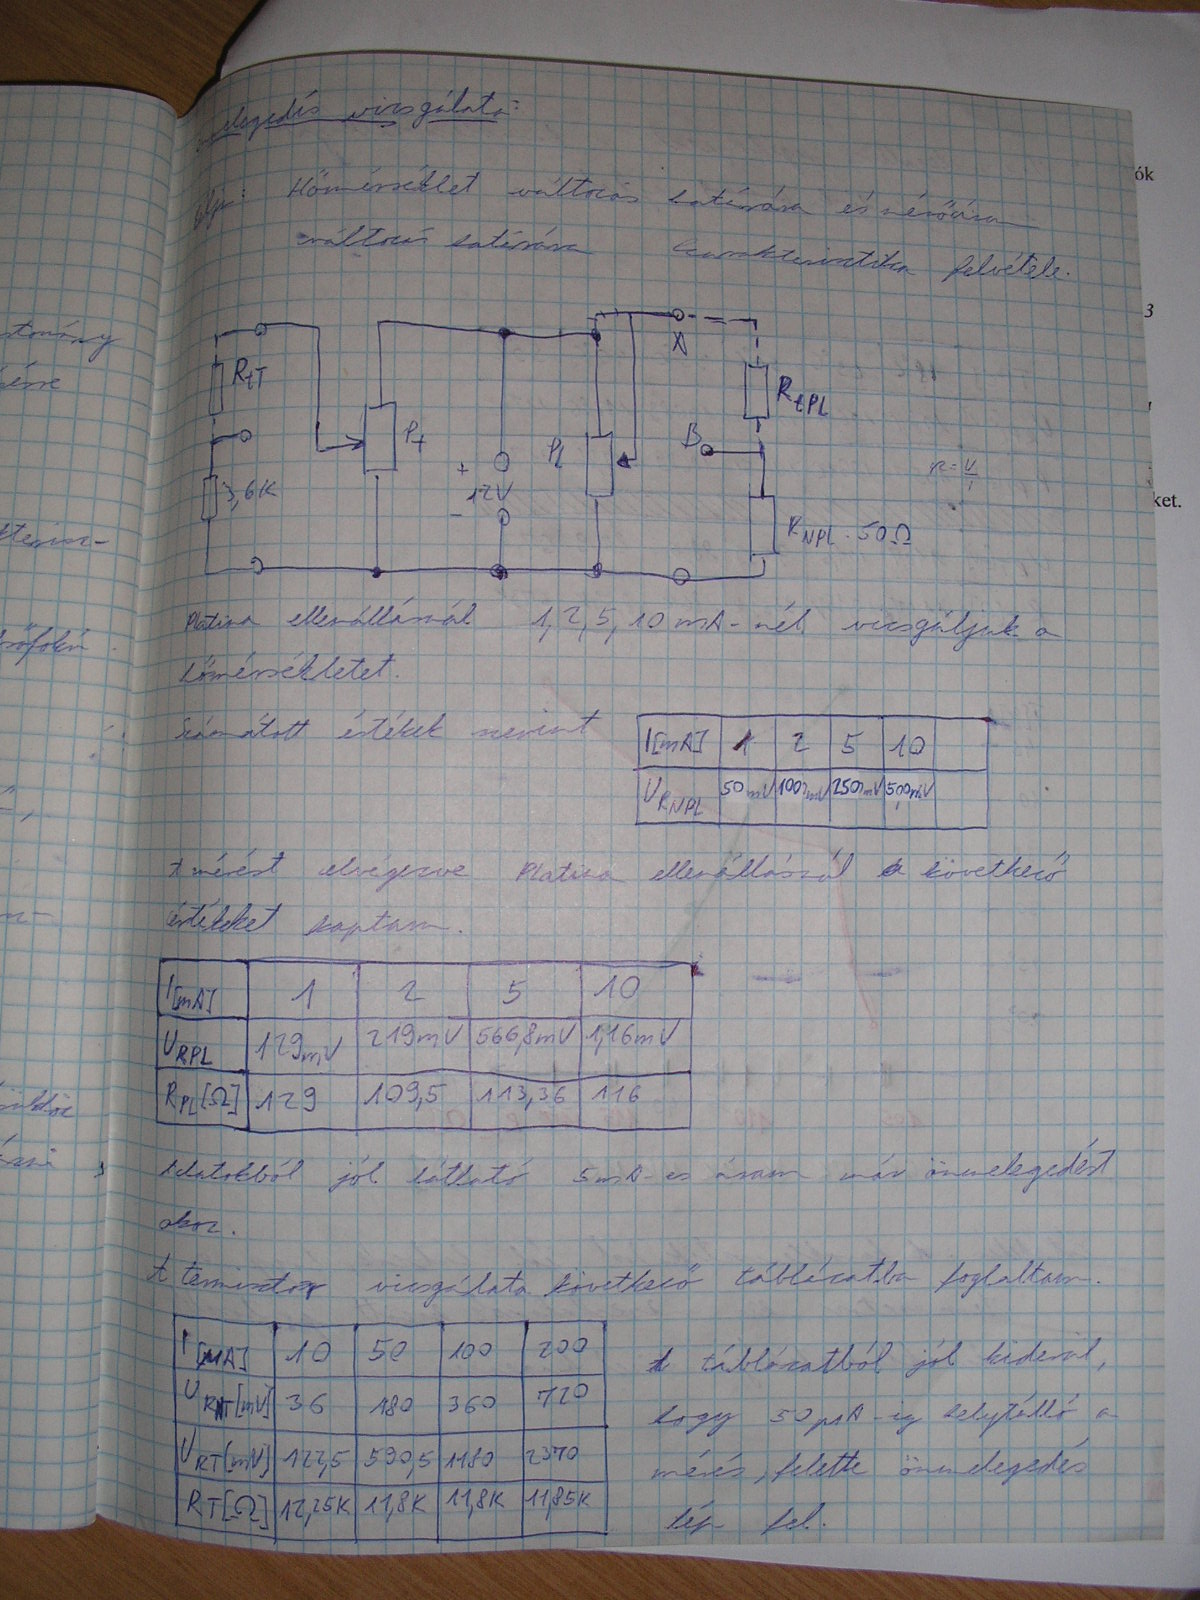 vizsgálata:
Hőmérséklet változás hatására és
változás hatására karakterisztika felvétele.
ók
3
ket.
RtT
Pt
+
12V
-
Pl
A
RtPL
B
3,6K
RNPL. 50Ω
R=U/I
Platina ellenállásnál 1, 2, 5, 10 mA-nél vizsgáljuk a
hőmérsékletet.
Számított értékek szerint
I[mA] 1 2 5 10
URNPL 50mV 100mV 250mV 500mV
A mérést elvégezve Platina ellenállásnál a következő
értékeket kaptam.
I[mA] 1 2 5 10
URPL 129mV 219mV 566,8mV 1,16mV
RPL[Ω] 129 109,5 113,36 116
Adatokból jól látható 5mA-es áram már önmelegedést
okoz.
A termisztor vizsgálata következő táblázatba foglaltam.
I[µA] 10 50 100 200
URNT[mV] 36 180 360 720
URT[mV] 122,5 590,5 1180 2370
RT[Ω] 12,25K 11,8K 11,8K 11,85K
A táblázatból jól kiderül,
hogy 50µA-ig helytálló a
mérés, felette önmelegedés
lép fel.